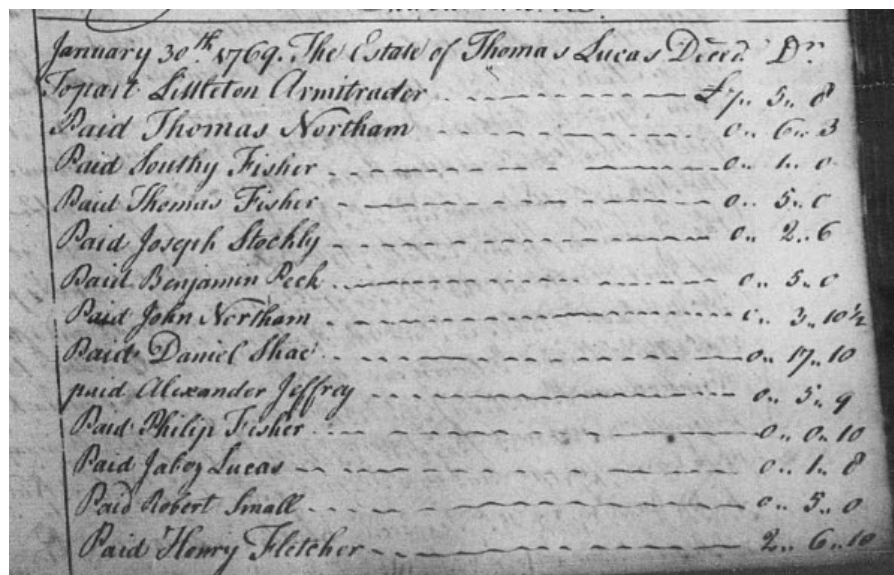 January 30th 1769. The Estate of Thomas Lucas Deced. Dr
To paid Littleton Armitrader £7,, 5,, 8
Paid Thomas Northam 0,, 6,, 3
Paid Southy Fisher 0,, 1,, 0
Paid Thomas Fisher 0,, 5,, 0
Paid Joseph Stockly 0,, 2,, 6
Paid Benjamin Peck 0,, 5,, 0
Paid John Northam 0,, 3,, 10½
Paid Daniel 0,, 17,, 10
paid Alexander Jeffrey 0,, 5,, 9
Paid Philip Fisher 0,, 0,, 10
Paid Jabez Lucas 0,, 1,, 8
Paid Robert Small 0,, 5,, 0
Paid Henry Fletcher 2,, 6,, 10